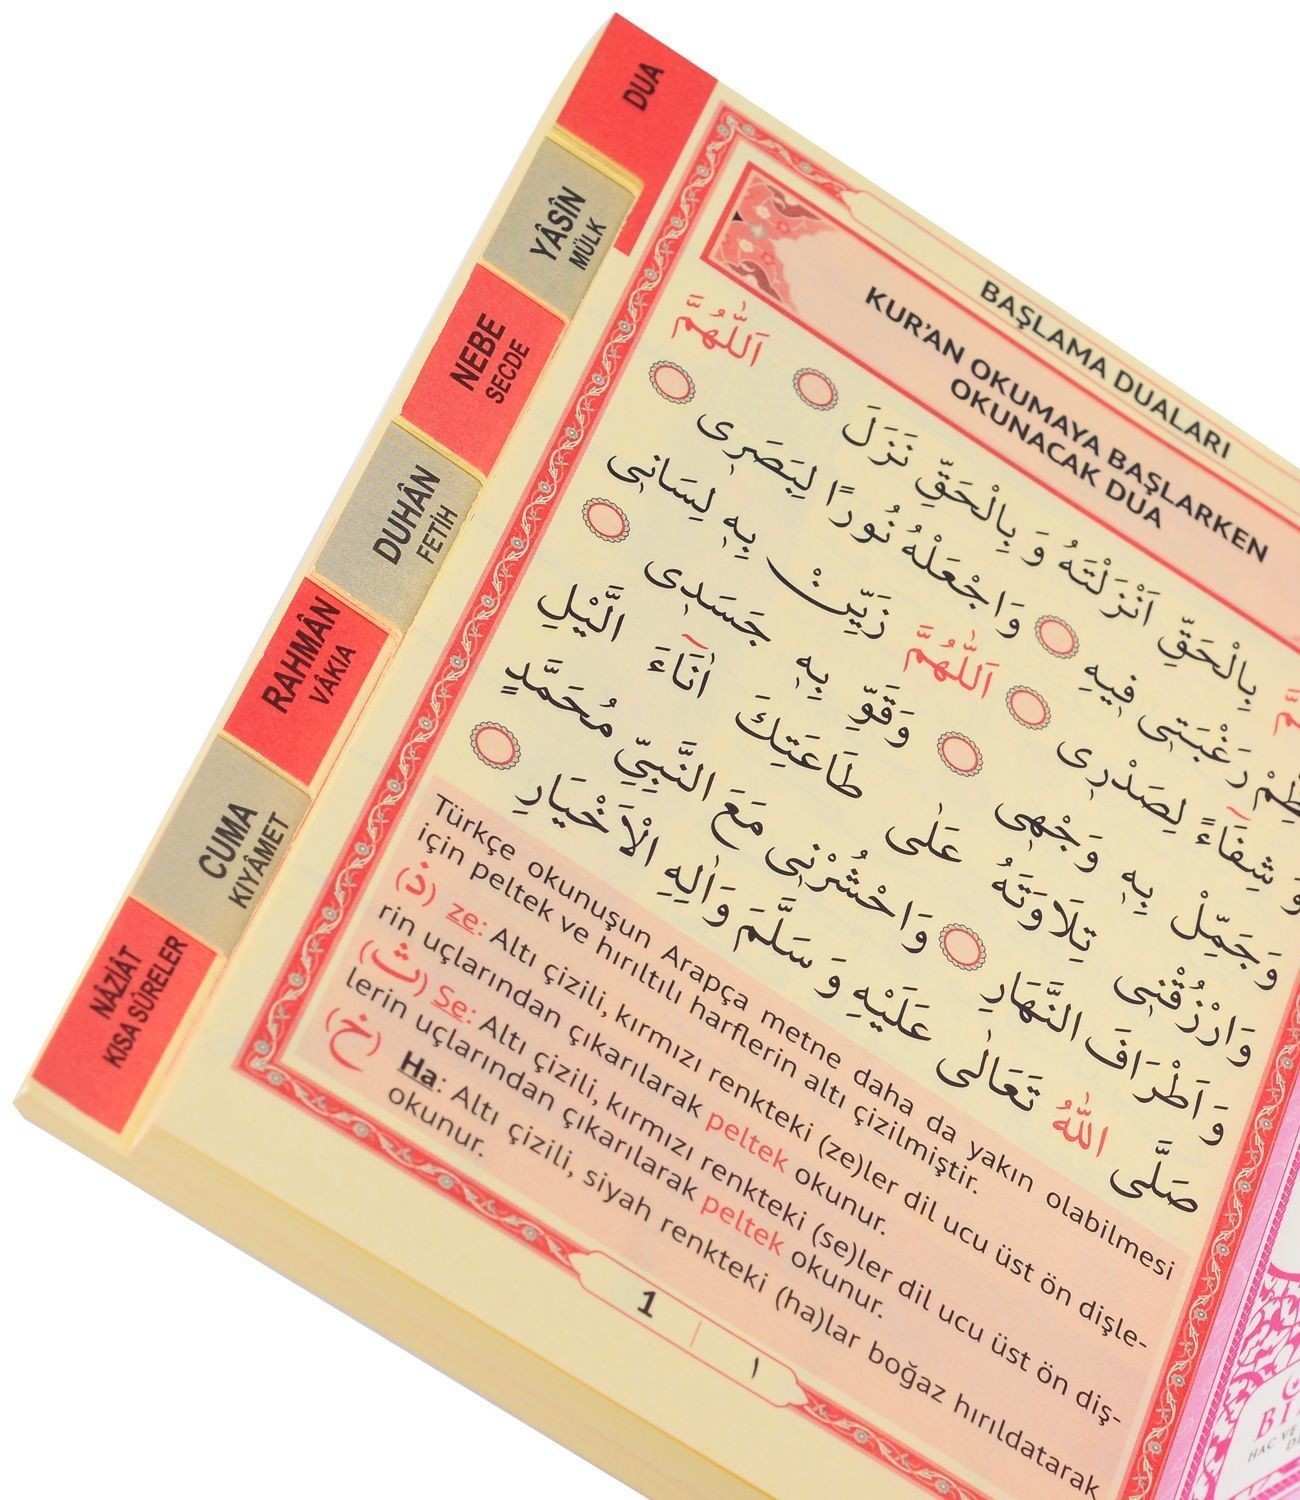 DUA
YÂSÎN
MÜLK
NEBE
SECDE
DUHÂN
FETİH
RAHMÂN
VÂKIA
CUMA
KIYÂMET
NÂZİÂT
KISA SÛRELER
BAŞLAMA DUALARI
KUR'AN OKUMAYA BAŞLARKEN
OKUNACAK DUA
بِالْحَقِّ اَنْزَلْتَهُ وَ بِالْحَقِّ نَزَلَ اَللّٰهُمَّ
رَغْبَتٖى فٖيهِ وَاجْعَلْهُ نُورًا لِبَصَرٖى
وَ شِفَٓاءً لِصَدْرٖى اَللّٰهُمَّ زَيِّنْ بِهٖ لِسَانٖى
وَجَمِّلْ بِهٖ وَجْهٖى وَقَوِّ بِهٖ جَسَدٖى
وَارْزُقْنٖى تِلَاوَتَهُ عَلٰى طَاعَتِكَ اٰنَٓاءَ الَّيْلِ
وَاَطْرَافَ النَّهَارِ وَاحْشُرْنٖى مَعَ النَّبِيِّ مُحَمَّدٍ
صَلَّى اللّٰهُ تَعَالٰى عَلَيْهِ وَ سَلَّمَ وَاٰلِهِ الْاَخْيَارِ
Türkçe okunuşun Arapça metne daha da yakın olabilmesi
için peltek ve hırıltılı harflerin altı çizilmiştir.
(ذ) ze: Altı çizili, kırmızı renkteki (ze)ler dil ucu üst ön dişle-
rin uçlarından çıkarılarak peltek okunur.
(ث) Se: Altı çizili, kırmızı renkteki (se)ler dil ucu üst ön diş-
lerin uçlarından çıkarılarak peltek okunur.
(خ) Ha: Altı çizili, siyah renkteki (ha)lar boğaz hırıldatarak
okunur.
1 | ١